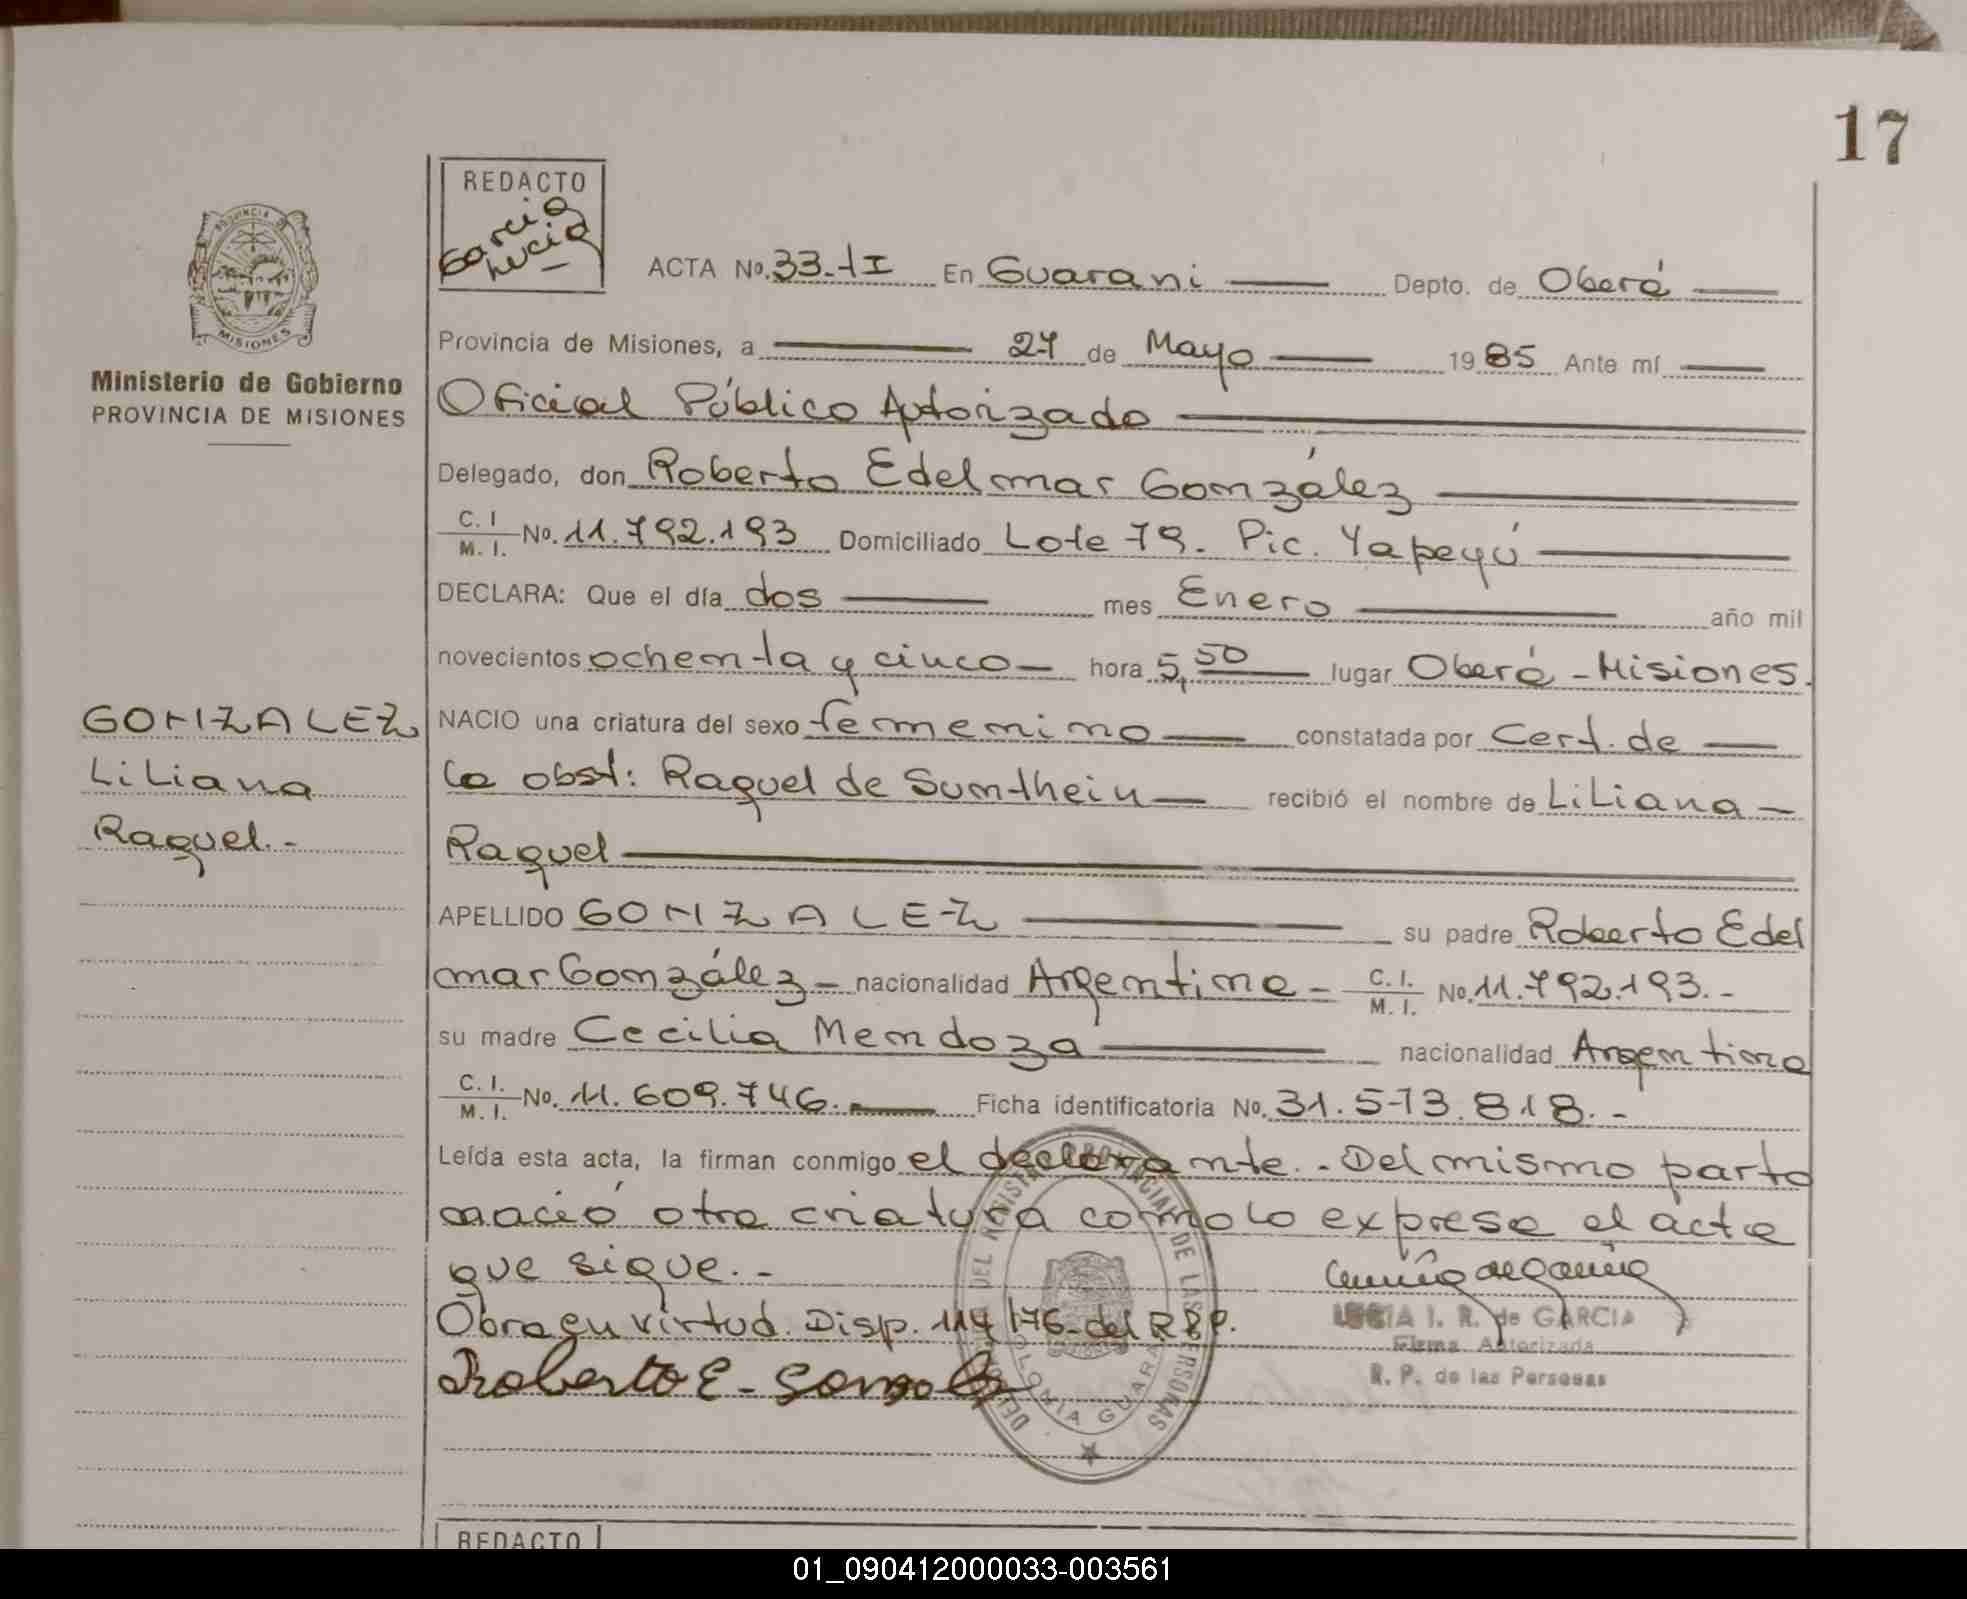 17
REDACTO
Garcia
Lucia
PROVINCIA DE
MISIONES
Ministerio de Gobierno
PROVINCIA DE MISIONES
ACTA No. 33-tI En Guarani Depto. de Oberá
Provincia de Misiones, a 27 de Mayo 1985 Ante mí
Oficial Público Autorizado
Delegado, don Roberto Edelmar González
C. I. / M. I. No. 11.792.193 Domiciliado Lote 79. Pic. Yapeyú
DECLARA: Que el día dos mes Enero año mil
novecientos ochenta y cinco hora 5,50 lugar Oberá - Misiones.
GONZALEZ
Liliana
Raquel.-
NACIO una criatura del sexo femenino constatada por Cert. de
la obst: Raquel de Sumthein recibió el nombre de Liliana
Raquel
APELLIDO GONZALEZ su padre Roberto Edel
mar González nacionalidad Argentina C. I. / M. I. No. 11.792.193.-
su madre Cecilia Mendoza nacionalidad Argentina
C. I. / M. I. No. 11.609.746. Ficha identificatoria No. 31.573.818.-
Leída esta acta, la firman conmigo el declarante.- Del mismo parto
nació otra criatura como lo expresa el acta
que sigue.-
Obra en virtud. Disp. 114/76 del R.P.P.
Roberto E. Gonzalez
LUCIA I. R. de GARCIA
Firma Autorizada
R. P. de las Personas
DEL REGISTRO PROVINCIAL DE LAS PERSONAS
COLONIA GUARANI
REDACTO
01_090412000033-003561